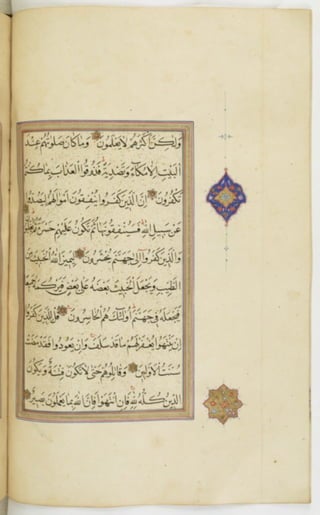 وَلَٰكِنَّ أَكْثَرَهُمْ لَا يَعْلَمُونَ وَمَا كَانَ صَلَوتُهُمْ عِنْدَ
الْبَيْتِ إِلَّا مُكَاءً وَتَصْدِيَةً فَذُوقُوا الْعَذَابَ بِمَا كُنْتُمْ
تَكْفُرُونَ إِنَّ الَّذِينَ كَفَرُوا يُنْفِقُونَ أَمْوَالَهُمْ لِيَصُدُّوا
عَنْ سَبِيلِ اللَّهِ فَسَيُنْفِقُونَهَا ثُمَّ تَكُونُ عَلَيْهِمْ حَسْرَةً ثُمَّ يُغْلَبُونَ
وَالَّذِينَ كَفَرُوا إِلَى جَهَنَّمَ يُحْشَرُونَ لِيَمِيزَ اللَّهُ الْخَبِيثَ مِنَ
الطَّيِّبِ وَيَجْعَلَ الْخَبِيثَ بَعْضَهُ عَلَى بَعْضٍ فَيَرْكُمَهُ جَمِيعًا
فَيَجْعَلَهُ فِي جَهَنَّمَ أُولَٰئِكَ هُمُ الْخَاسِرُونَ قُلْ لِلَّذِينَ كَفَرُوا
إِنْ يَنْتَهُوا يُغْفَرْ لَهُمْ مَا قَدْ سَلَفَ وَإِنْ يَعُودُوا فَقَدْ مَضَتْ
سُنَّتُ الْأَوَّلِينَ وَقَاتِلُوهُمْ حَتَّى لَا تَكُونَ فِتْنَةٌ وَيَكُونَ
الدِّينُ كُلُّهُ لِلَّهِ فَإِنِ انْتَهَوْا فَإِنَّ اللَّهَ بِمَا يَعْمَلُونَ بَصِيرٌ